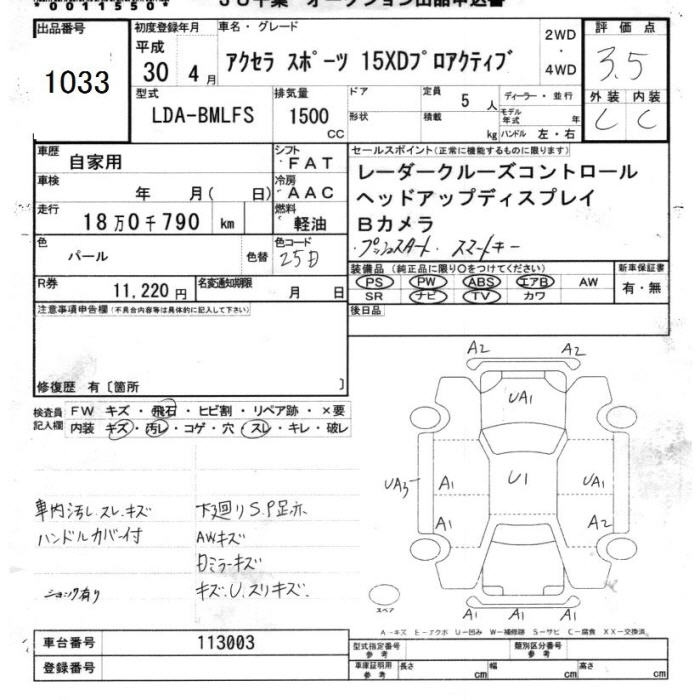 00115504 JU千葉 オークション出品申込書
出品番号 初度登録年月 車名・グレード 2WD・4WD 評価点
1033 平成 30 4月 アクセラ スポーツ 15XDプロアクティブ 3.5
型式 排気量 ドア 定員 5人 ディーラー・並行 外装 内装
LDA-BMLFS 1500 CC 形状 積載 kg モデル年式 年 C C
ハンドル 左・右
車歴 自家用 シフト FAT セールスポイント(正常に機能するものに限ります)
車検 年 月( 日) 冷房 AAC レーダークルーズコントロール
走行 18万0千790 km 燃料 軽油 ヘッドアップディスプレイ
Bカメラ
色 パール 色替 色コード 25D ・プッシュスタート スマートキー
R券 11,220円 名変通知期限 月 日 装備品(純正品に限り○をつけてください) 新車保証書
PS PW ABS エアB AW 有・無
SR ナビ TV カワ
注意事項申告欄(不具合内容等は具体的に記入して下さい) 後日品
修復歴 有〔箇所 〕
検査員記入欄 FW キズ・飛石・ヒビ割・リペア跡・×要
内装 キズ・汚レ・コゲ・穴・スレ・キレ・破レ
A2 A2
UA1
UA3 A1 U1 UA1
A1 A2
A1 A1 A1
スペア
車内汚レ.スレ.キズ 下廻りS.P足赤
ハンドルカバー付 AWキズ
Dミラーキズ
ショック有り キズ.U.スリキズ
A-キズ E-エクボ U-凹み W-補修跡 S-サビ C-腐食 XX-交換済
車台番号 113003 型式指定番号 参考 類別区分番号 参考
登録番号 車庫証明用 参考 長さ cm 幅 cm 高さ cm